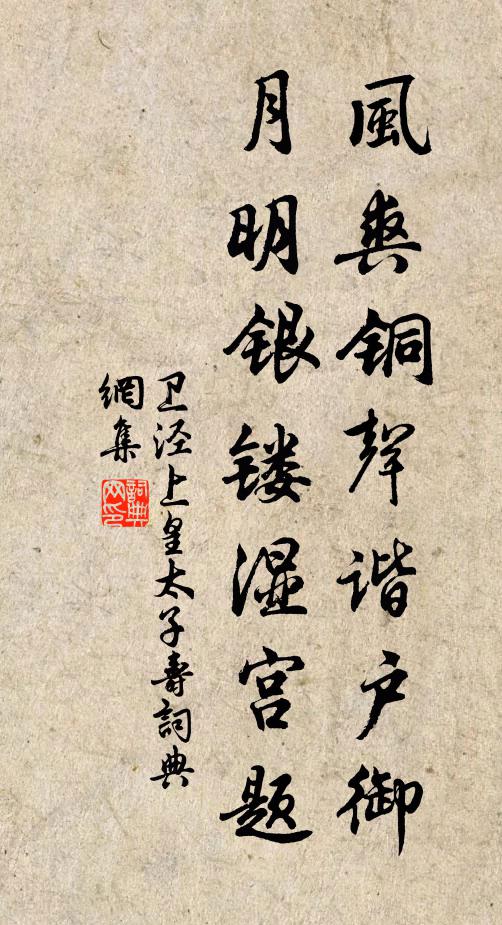 風爽铜聲谐户御
月明银镂湿宫题
卫泾上皇太子壽詞典
網集
詞典網印